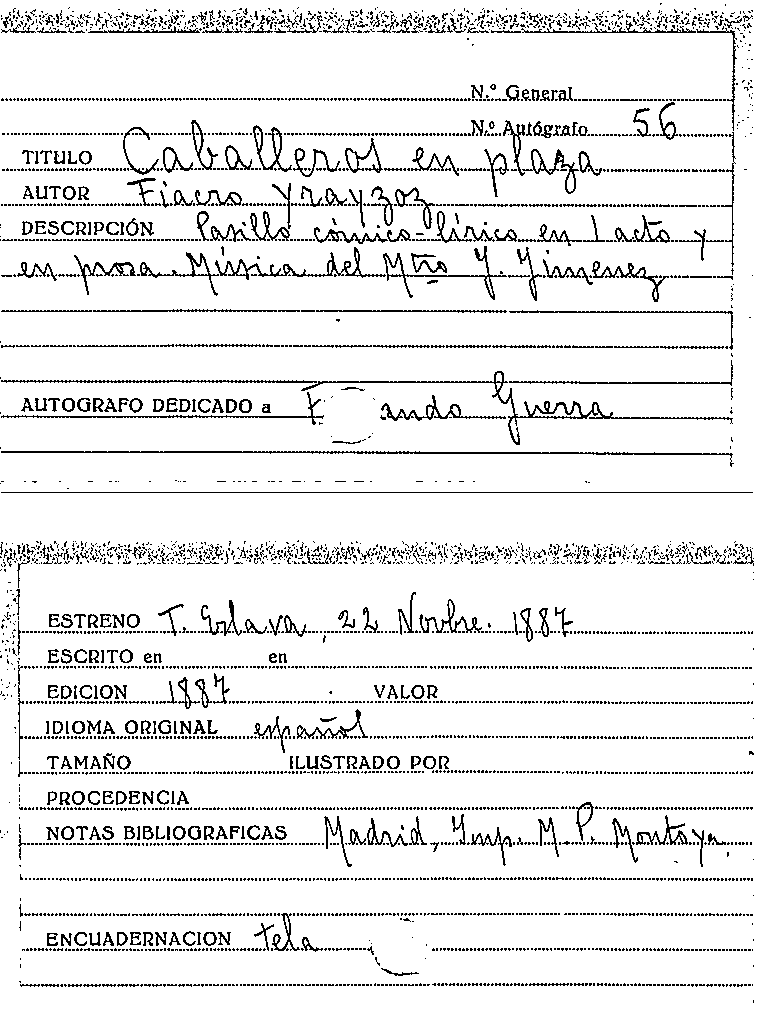 N.º General
N.º Autógrafo 56
TITULO Caballeros en plaza
AUTOR Fiacro Yrayzoz
DESCRIPCIÓN Pasillo cómico-lírico en 1 acto y
en prosa. Música del Mtro J. Jimenez
AUTOGRAFO DEDICADO a F ando Guerra
ESTRENO T. Eslava, 22 Novbre. 1887
ESCRITO en en
EDICION 1887 VALOR
IDIOMA ORIGINAL español
TAMAÑO ILUSTRADO POR
PROCEDENCIA
NOTAS BIBLIOGRAFICAS Madrid, Imp. M. P. Montoya.
ENCUADERNACION tela